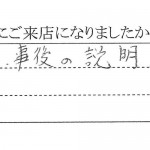 にご来店になりましたか
事後の説明